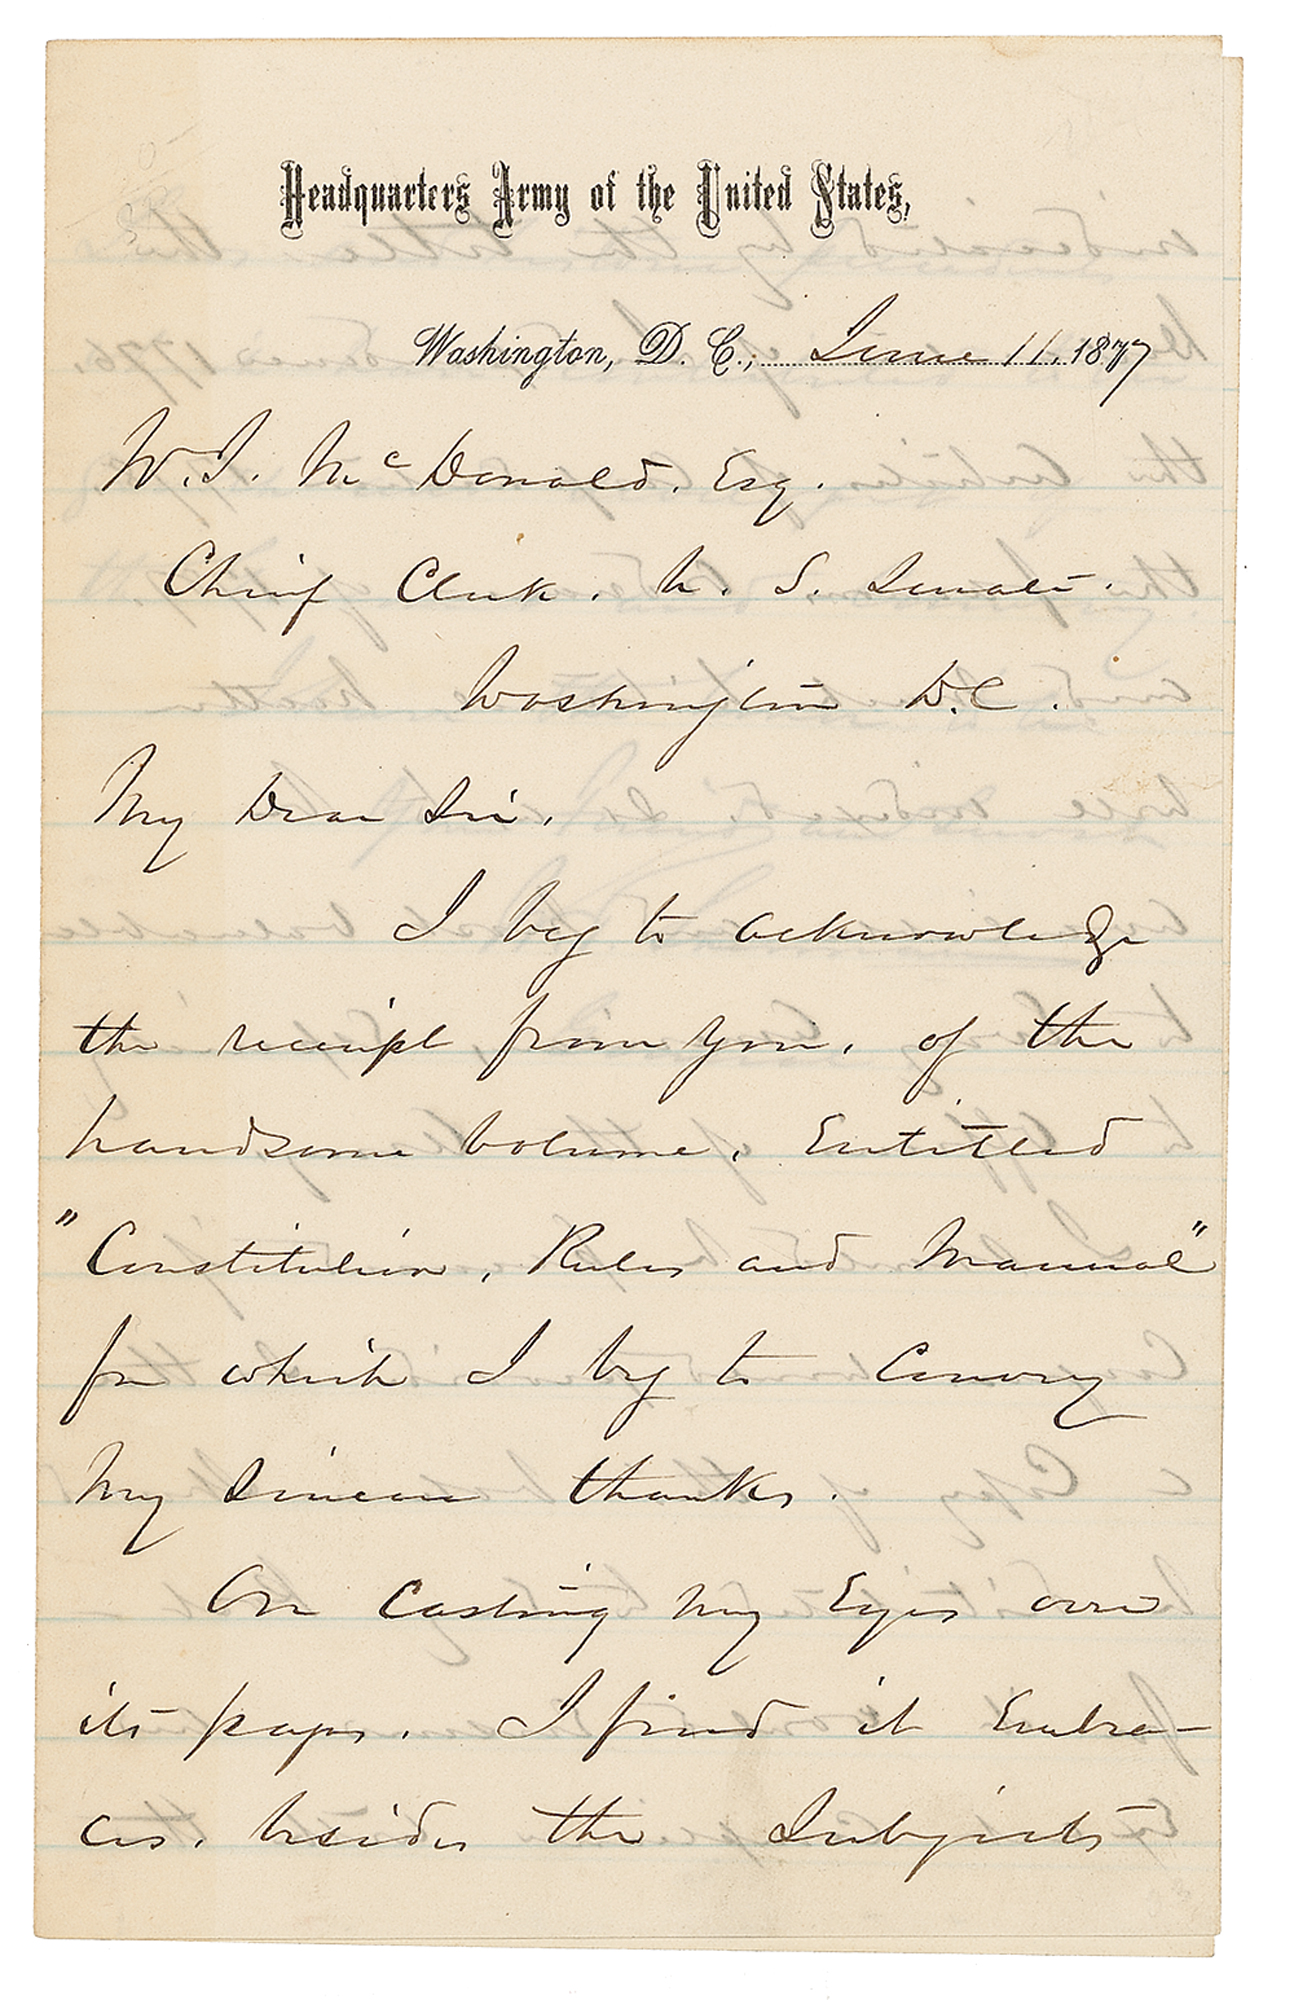 Headquarters Army of the United States,
Washington, D. C., June 11. 1877
W. J. McDonald. Esq.
Chief Clerk. U. S. Senate.
Washington D.C.
My Dear Sir.
I beg to acknowledge
the receipt from you, of the
handsome volume, Entitled
"Constitution, Rules and Manual"
for which I beg to Convey
my sincere thanks.
On Casting my Eyes over
its pages, I find it Embra-
ces, besides the Subjects